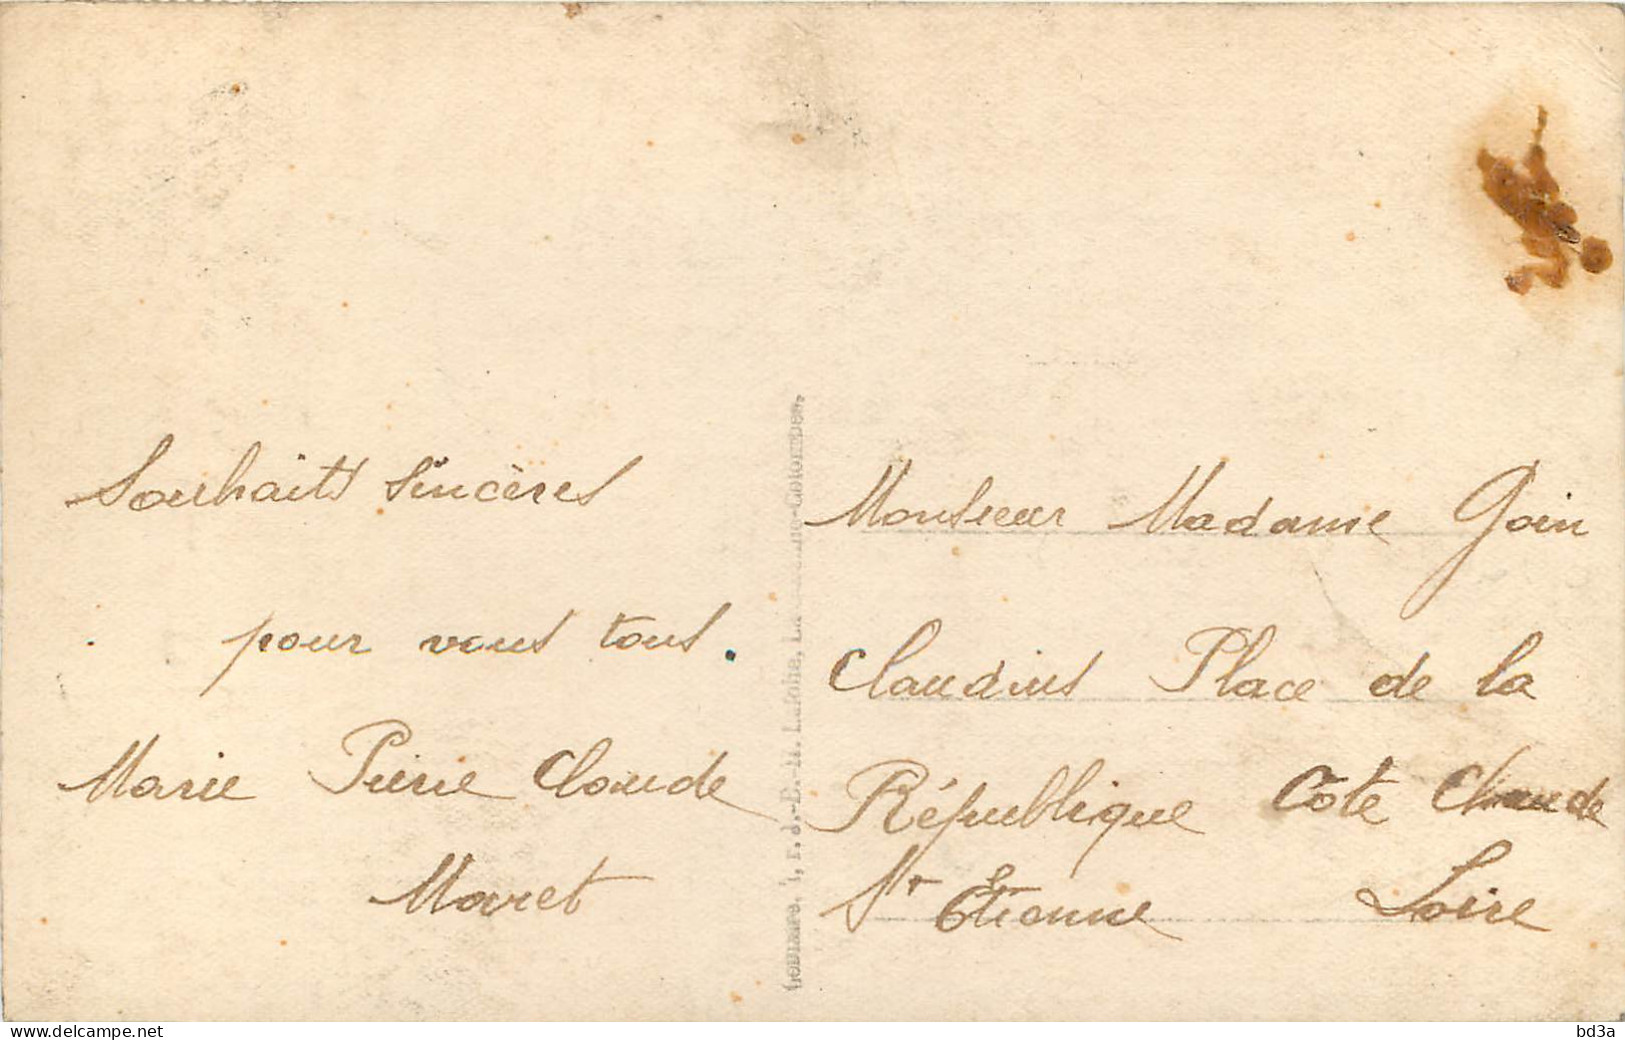 Souhaits sincères
pour vous tous.
Marie Pierre Claude
Maret
Monsieur Madame Goin
Claudius Place de la
République Cote Claude
St Etienne Loire
www.delcampe.net
bd3a